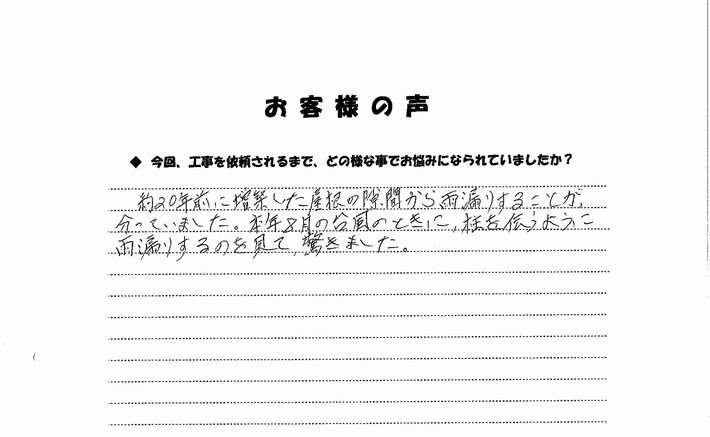 お客様の声
◆ 今回、工事を依頼されるまで、どの様な事でお悩みになられていましたか？
約20年前に増築した屋根の隙間から、雨漏りすることが、
分っていました。本年8月の台風のときに、柱を伝うように
雨漏りするのを見て、驚きました。